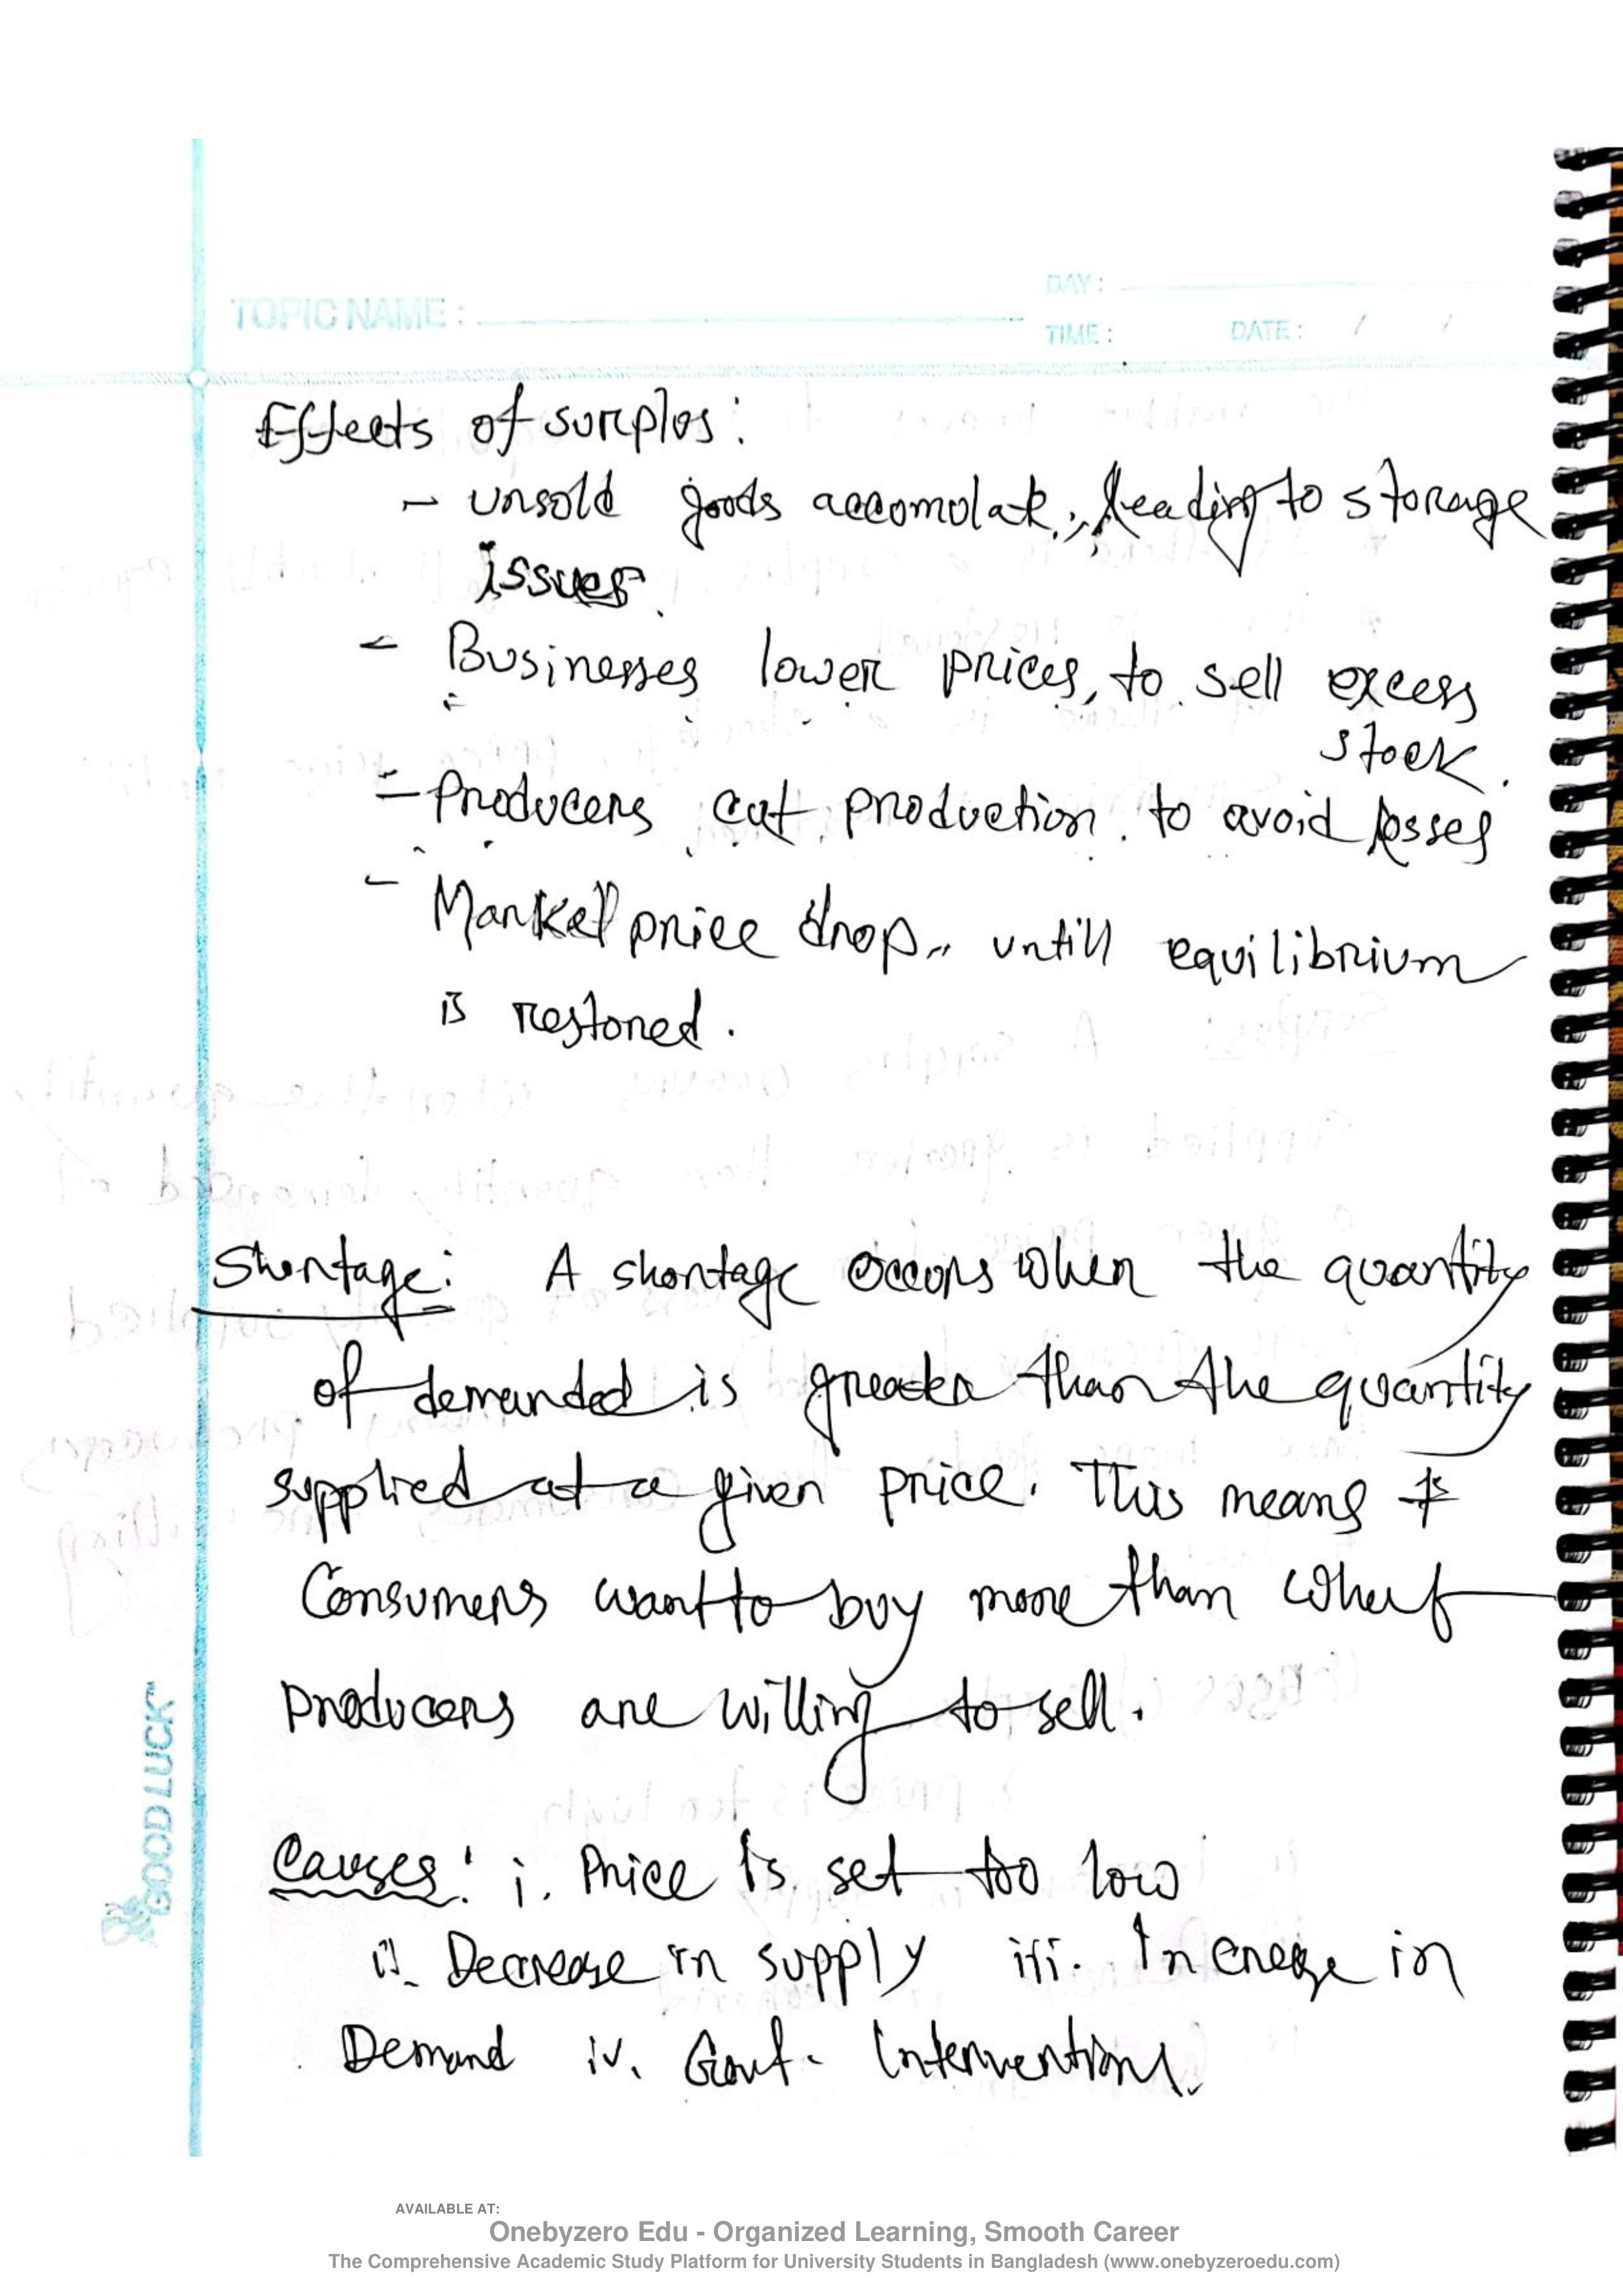 TOPIC NAME :
DAY :
TIME : DATE : / /
Effects of surplus :
- unsold goods accomulate, leading to storage
issues.
- Businesses lower prices, to sell excess
stock.
- Producers cut production to avoid losses
- Market price drop, untill equilibrium
is restored.
Shortage: A shortage occurs when the quantity
of demanded is greater than the quantity
supplied at a given price. This means
Consumers want to buy more than what
producers are willing to sell.
Causes: i. Price is set too low
ii. Decrease in supply iii. Increase in
Demand iv. Govt. Intervention.
GOOD LUCK™
AVAILABLE AT:
Onebyzero Edu - Organized Learning, Smooth Career
The Comprehensive Academic Study Platform for University Students in Bangladesh (www.onebyzeroedu.com)